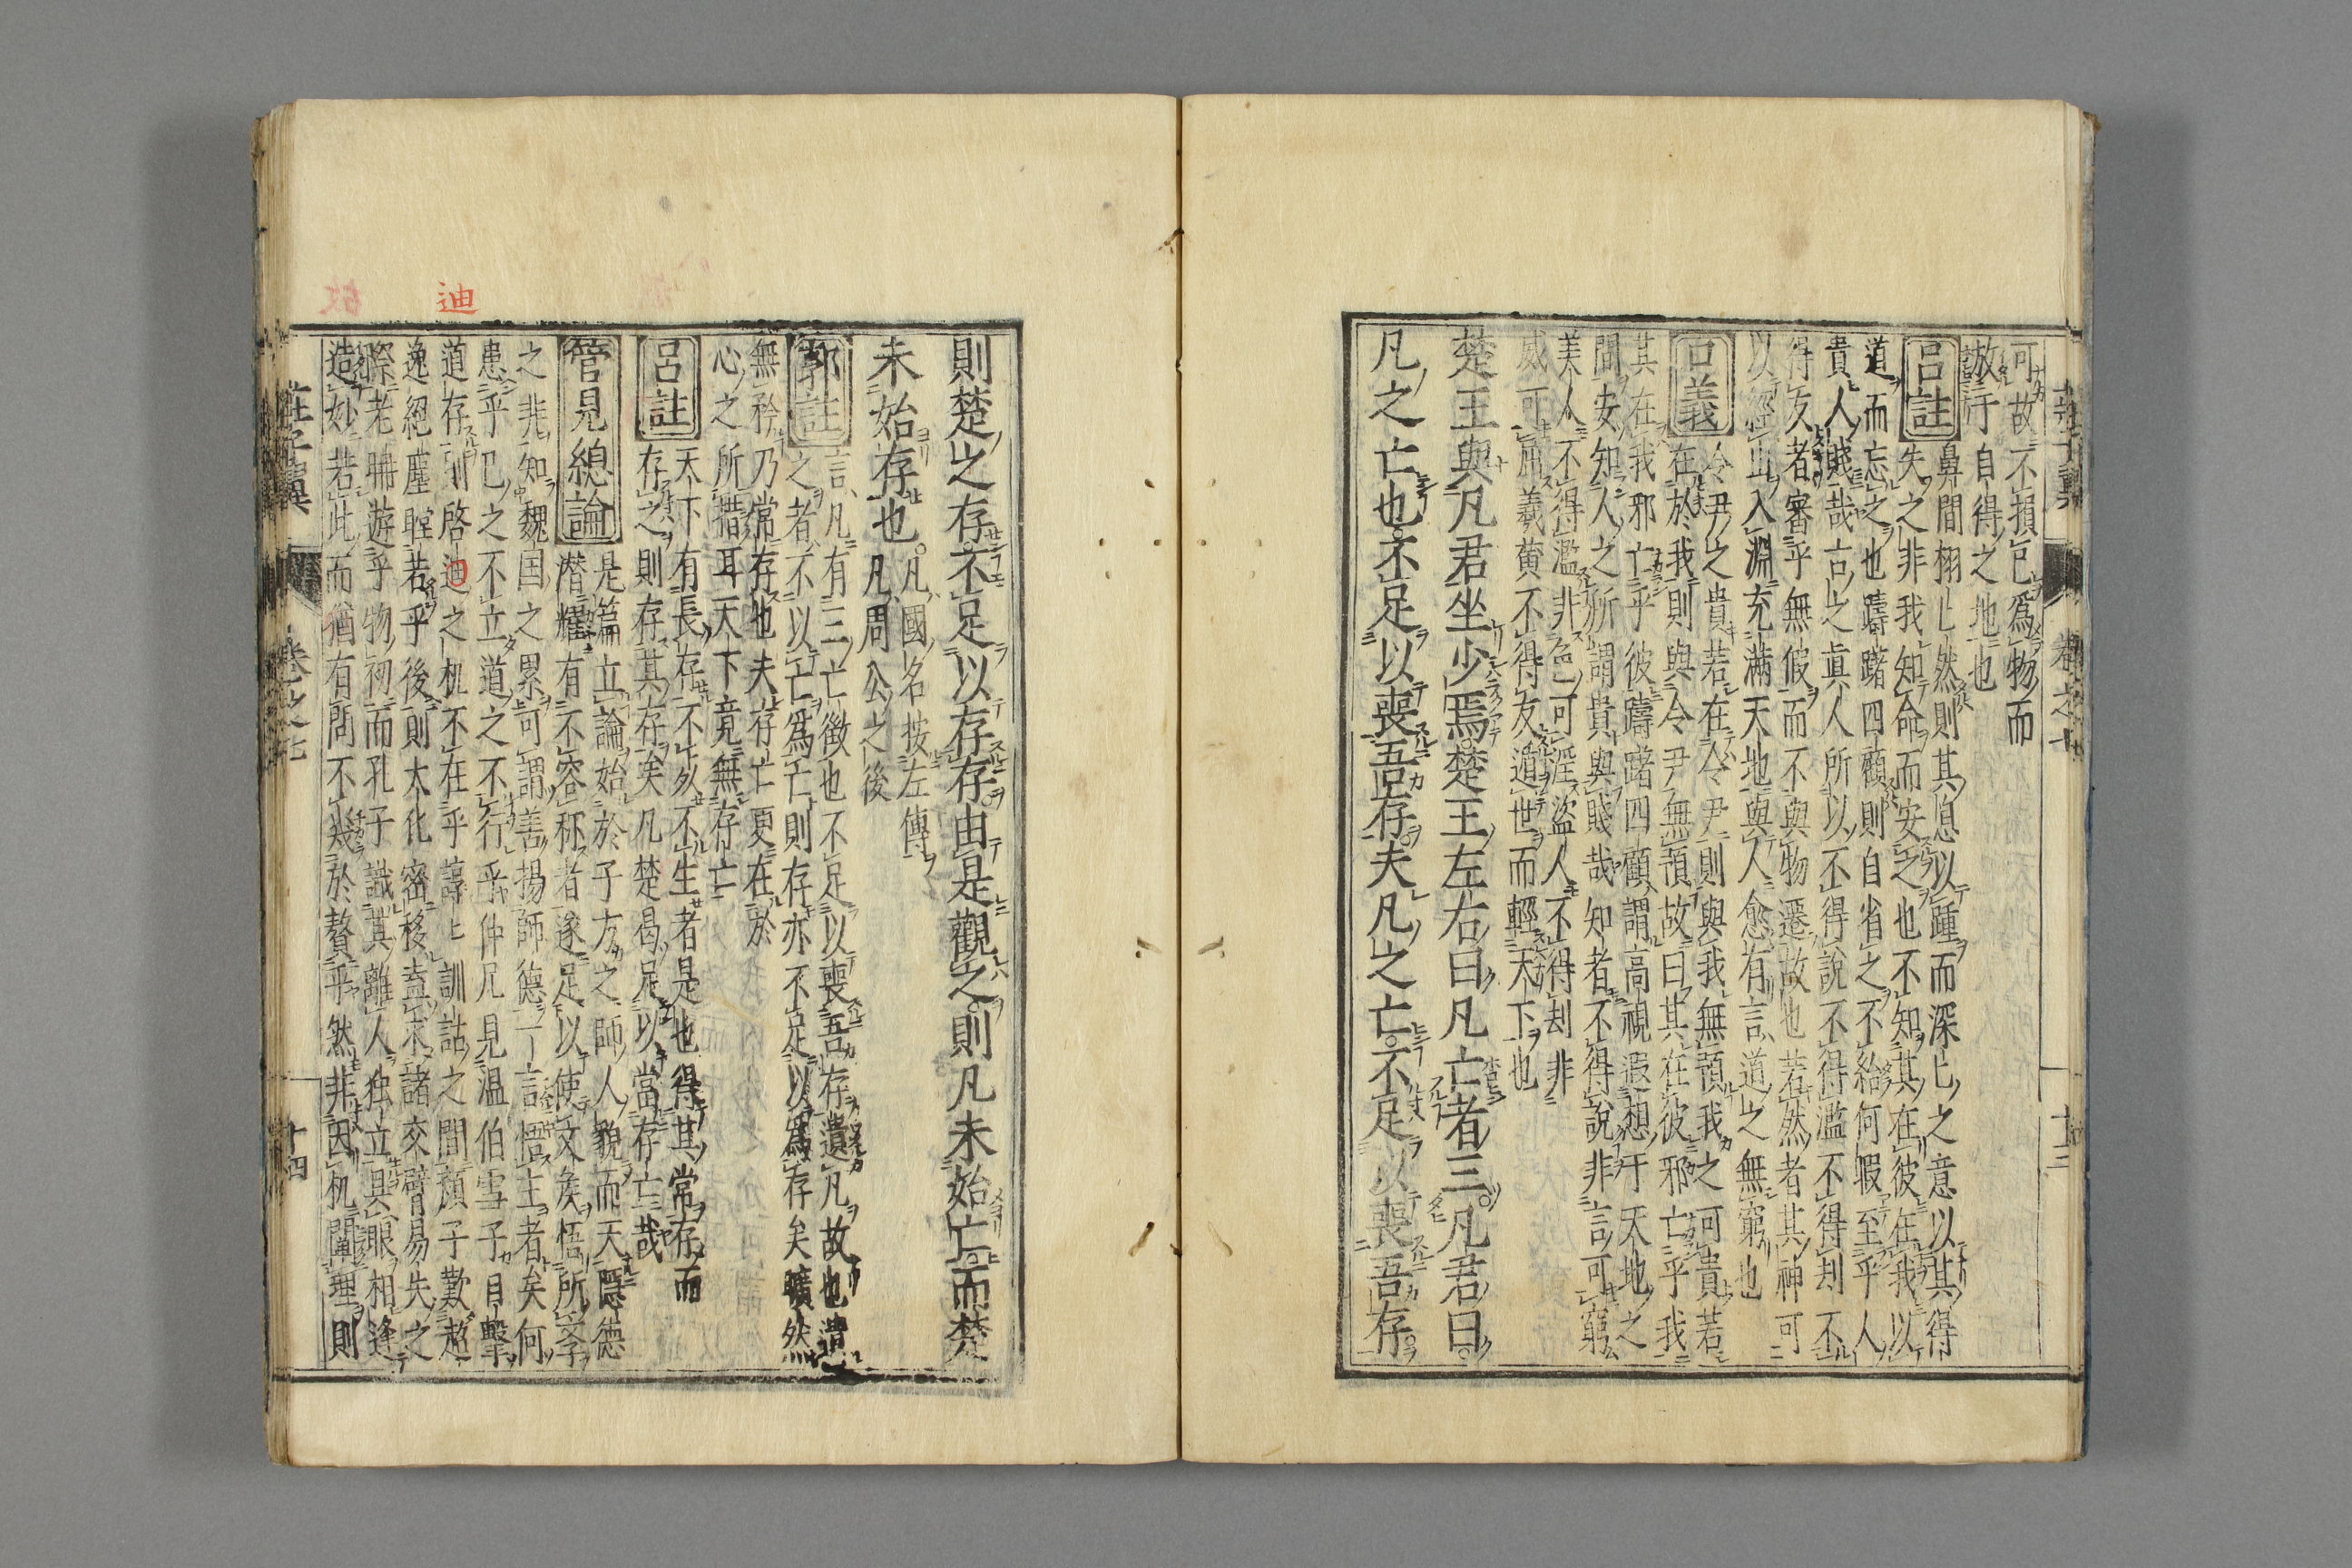 可故不損已爲物而
放於自得之地也
呂註
鼻間栩〻然則其息以踵而深〻之意以其得
失之非我知命而安之也不知其在彼在我以
道而忘之也躊躇四顧則自省之不給何暇至乎人
貴人賤哉古之眞人所以不得說不得濫不得刦不
得友者審乎無假而不與物遷故也若然者其神可
以經山入淵充滿天地與人愈有言道之無窮也
口義
令尹之貴若在令尹則與我無預我之可貴若
在於我則與令尹無預故曰其在彼邪亡乎我
其在我邪亡乎彼躊躇四顧謂高視遐想于天地之
間安知人之所謂貴與賤哉知者不得說非言可窮
美人不得濫非色可淫盜人不得刦非
威可屈羲黄不得友遁世而輕天下也
楚王與凡君坐少焉楚王左右曰凡亡者三凡君曰
凡之亡也不足以喪吾存夫凡之亡不足以喪吾存
則楚之存不足以存存由是觀之則凡未始亡而楚
未始存也
凡國名按左傳
凡周公之後
郭註
言凡有三亡徵也不足以喪吾存遺凡故也遺
之者不以亡爲亡則存亦不足以爲存矣曠然
無矜乃常存也夫存亡更在於
心之所措耳天下竟無存亡
呂註
天下有長存不久不生者是也得其常存而
存之則存其存矣凡楚曷足以當存亡哉
管見總論
是篇立論始於子方之師人貌而天隱德
潜耀有不容称者遂足以使文矦悟所学
之非知魏国之累可謂善揚師德一言悟主者矣何
患乎已之不立道之不行乎仲尼見温伯雪子目擊
道存則啓迪之机不在乎諄〻訓詁之間顔子歎超
逸絕塵瞠若乎後則大化密移盍求諸交臂易失之
際老聃遊乎物初而孔子識其離人独立具眼相逢
造妙若此而猶有問不幾於贅乎然非因机闡理則
迪
莊子翼 卷之七 十四
卷之七 十三